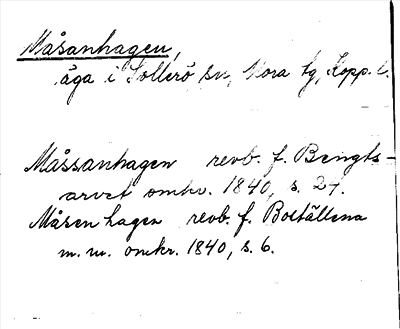 Måsanhagen,
äga i Sollerö sn, Mora tg, Kopp. l.
Måssanhagen revb. f. Bengts-
arvet omkr. 1840, s. 27.
Måsen hagen revb. f. Boställena
m. m. omkr. 1840, s. 6.